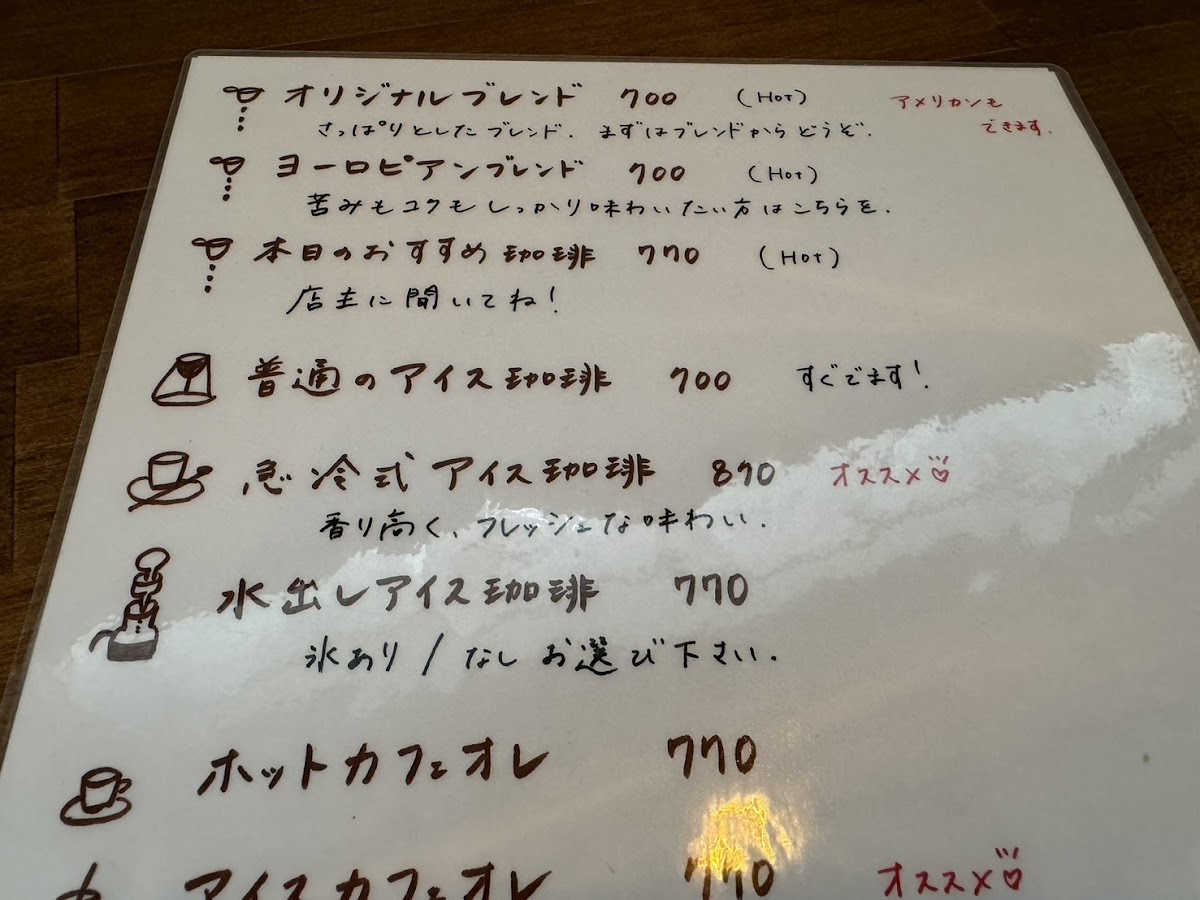 オリジナルブレンド 700 (Hot) アメリカンも
できます.
さっぱりとしたブレンド. まずはブレンドからどうぞ.
ヨーロピアンブレンド 700 (Hot)
苦みもコクもしっかり味わいたい方はこちらを.
本日のおすすめ珈琲 770 (Hot)
店主に聞いてね!
普通のアイス珈琲 700 すぐでます!
急冷式アイス珈琲 870 オススメ♡
香り高く、フレッシュな味わい.
水出しアイス珈琲 770
氷あり/なしお選び下さい.
ホットカフェオレ 770
アイスカフェオレ 770 オススメ♡